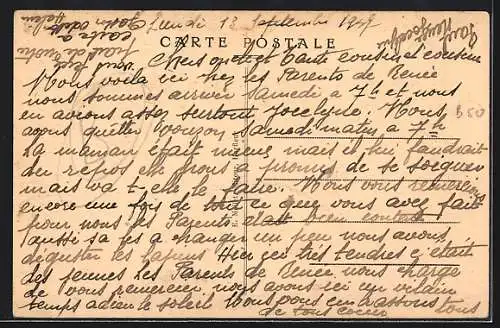 Lundi 12 Septembre 1949
CARTE POSTALE
Chers oncle et tante cousin et cousine
Nous voila ici chez les Parents de Renée
nous sommes arrivée Samedi à 7h et nous
en avions assez surtout Jocelyne. Nous
avons quitter Samedi matin a 7h
La maman était mieux mais il lui faudrait
du repos elle nous a promis de se soigner
mais va t elle le faire. Nous vous remercions
encore une fois de tout ce que vous avez fait
pour nous les Parents était bien content
aussi sa fes a changer un peu nous avons
deguster les lapins Hier ser très tendres c'était
des jeunes Les Parents de Renée nous charge
de vous remercier, nous avons ici un vilain
temps adieu le soleil Nous vous embrassons tous
de tous coeur
350